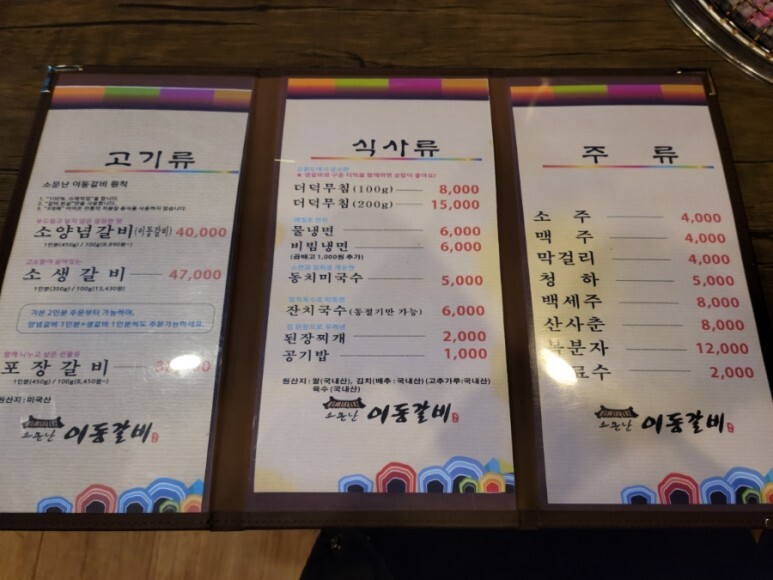 고기류
소문난 이동갈비 원칙
소양념갈비(이동갈비) 40,000
1인분(450g) / 100g(8,890원~)
소생갈비 47,000
1인분(350g) / 100g(13,430원)
기본 2인분 주문부터 가능하며,
양념갈비 1인분+생갈비 1인분씩도 주문가능하세요.
함께 나누고 싶은 선물용
포장갈비
1인분(450g) / 100g(8,450원~)
원산지 : 미국산
소문난 이동갈비
식사류
더덕무침(100g) 8,000
더덕무침(200g) 15,000
물냉면 6,000
비빔냉면 6,000
(곱빼고 1,000원 추가)
동치미국수 5,000
잔치국수(동절기만 가능) 6,000
된장찌개 2,000
공기밥 1,000
원산지 : 쌀(국내산), 김치(배추 : 국내산) (고추가루:국내산)
육수(국내산)
소문난 이동갈비
주 류
소 주 4,000
맥 주 4,000
막걸리 4,000
청 하 5,000
백세주 8,000
산사춘 8,000
복분자 12,000
료수 2,000
소문난 이동갈비